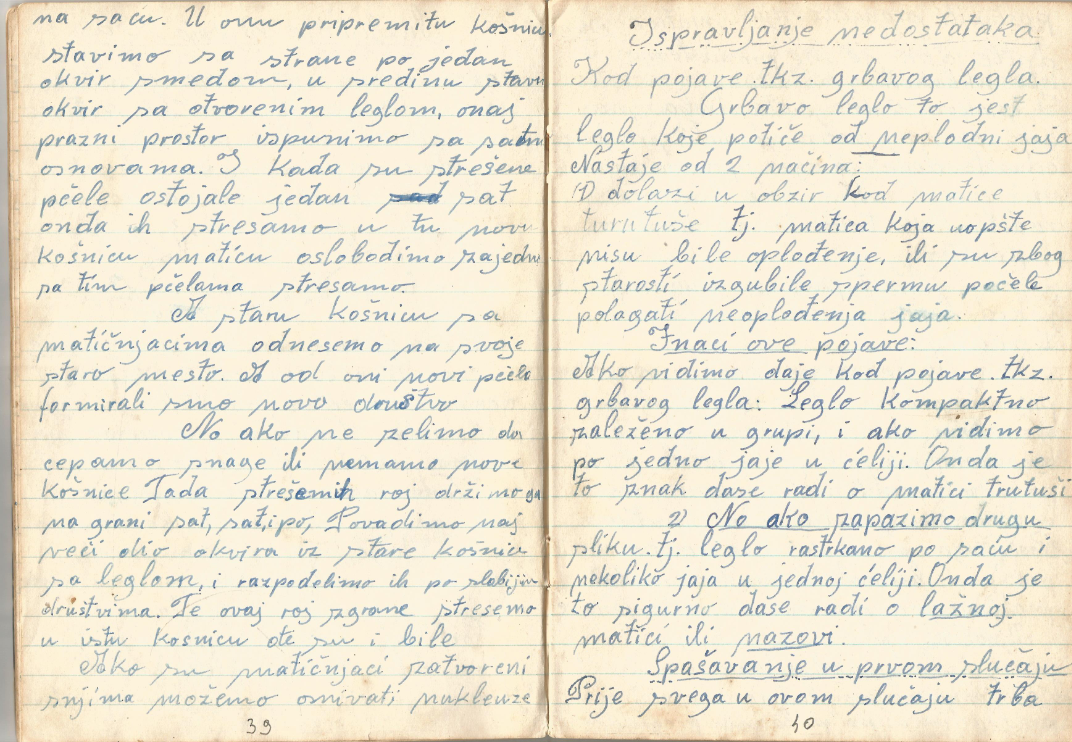 na saću. U onu pripremitu košnicu
stavimo sa strane po jedan
okvir smeđom, u sredinu stavit
okvir sa otvorenim leglom, onaj
prazni prostor ispunimo sa satn
osnovama. I kada su strešene
pčele ostojale jedan sat
onda ih stresamo u tu novu
košnicu maticu oslobođimo zajedno
sa tim pčelama stresamo.
A staru košnicu sa
matičnjacima odnesemo na svoje
staro mesto. A od oni novi pčela
formirali smo novo douštvo
No ako ne zelimo da
cepamo snage ili nemamo nove
košnice Tada strešemih roj držimo ga
na grani sat, sat,ipo, Povadimo naj
veći dio okvira iz stare košnice
sa leglom, i razpodelimo ih po slabijim
društvima. Te ovaj roj zgrane stresemo
u istu kosnicu de su i bile
Ako su matičnjaci zatvoreni
snjima možemo osnivati nukleuze
39
Ispravljanje nedostataka.
Kod pojave .tkz. grbavog legla.
Grbavo leglo to jest
leglo koje potiče od neplodni jaja
Nastaje od 2 načina:
1) dolazi u obzir kod matice
turutuše tj. matica koja uopšte
nisu bile oplođenje, ili su zbog
starosti izgubile spermu počele
polagati neoplođenja jaja.
Znaci ove pojave:
Ako vidimo daje kod pojave .tkz.
grbavog legla: Leglo kompaktno
zaleženo u grupi, i ako vidimo
po jedno jaje u ćeliji. Onda je
to znak dase radi o matici trutuši
2) No ako zapazimo drugu
sliku. tj. leglo rastrkano po saću i
nekoliko jaja u jednoj ćeliji. Onda je
to sigurno dase radi o lažnoj.
matici ili nazovi.
Spašavanje u prvom slučaju
Prije svega u ovom slučaju trba
40